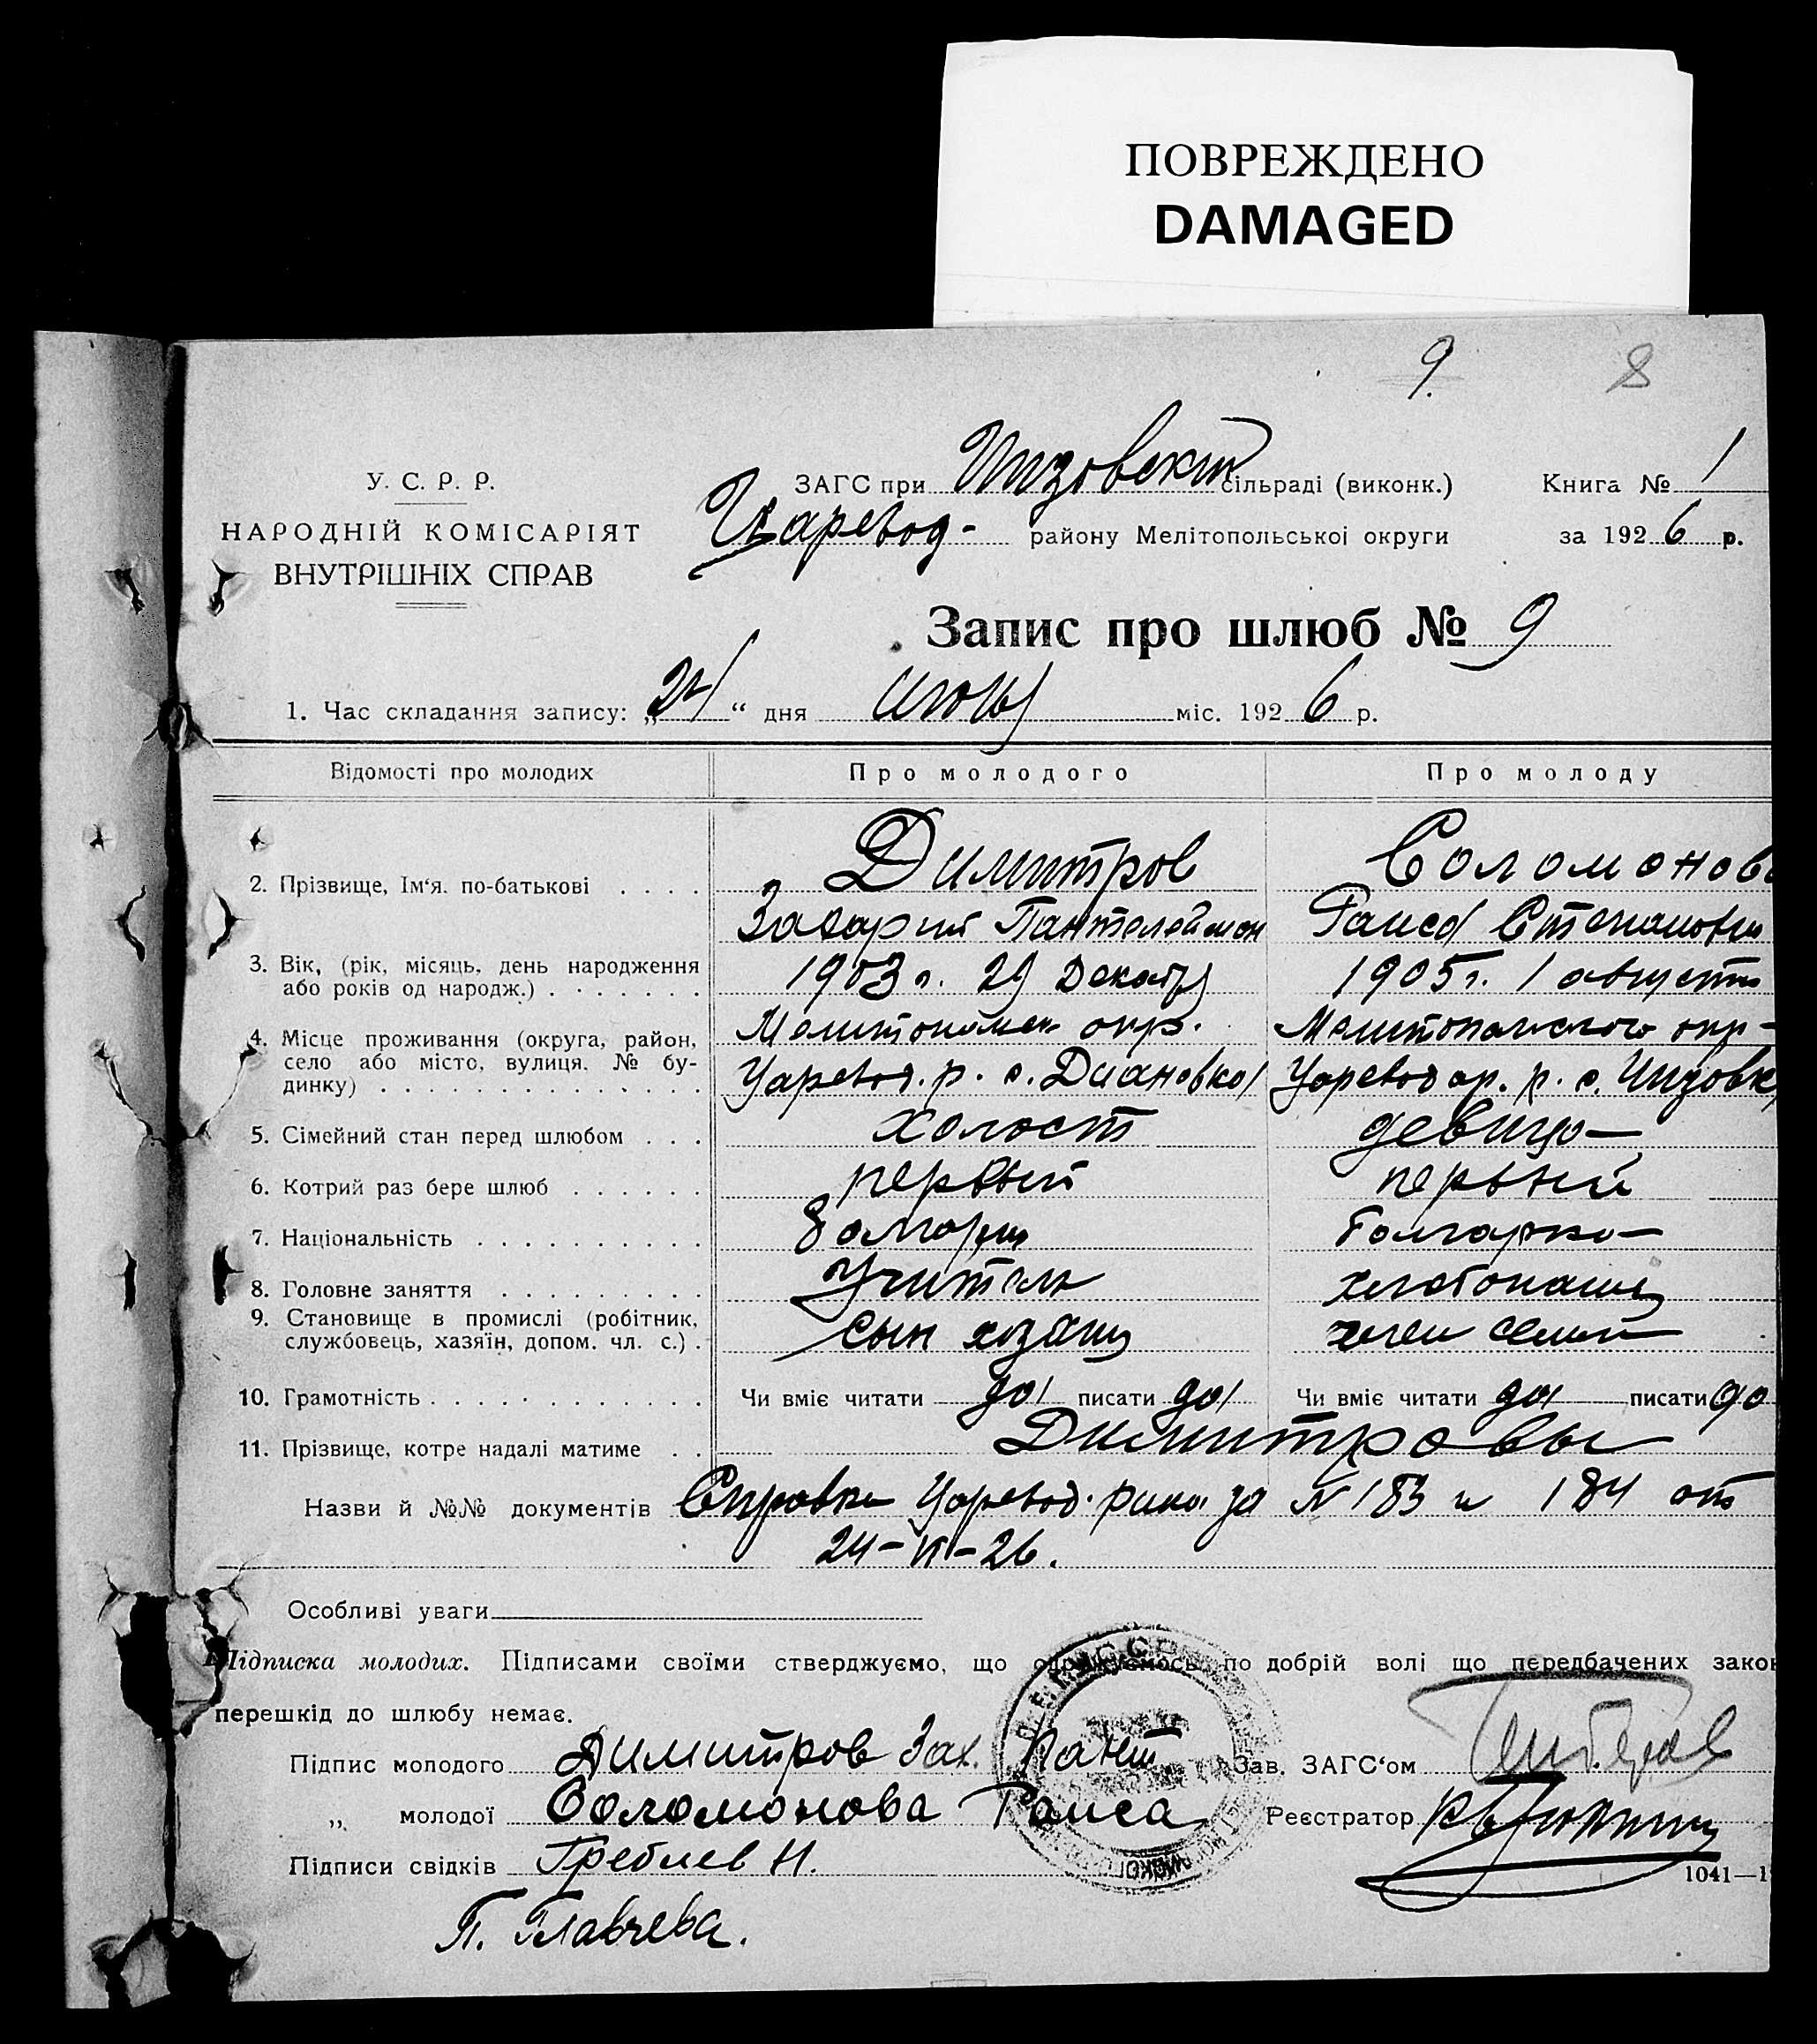 ПОВРЕЖДЕНО
DAMAGED
9. 8
У. С. Р. Р.
НАРОДНІЙ КОМІСАРІЯТ
ВНУТРІШНІХ СПРАВ
ЗАГС при Чизовской сільраді (виконк.) Книга № 1
Царевод- району Мелітопольської округи за 1926 р.
Запис про шлюб № 9
1. Час складання запису: „24“ дня июня міс. 1926 р.
Відомості про молодих Про молодого Про молоду
2. Прізвище, Ім‘я. по-батькові . . . . Димитров Соломонова
Захарий Пантелеймон Раиса Степановна
3. Вік, (рік, місяць, день народження 1903 г. 29 Декабр 1905 г. 1 августа
або років од народж.) . . . . . . .
4. Місце проживання (округа, район, Мелитопольск окр. Мелитопольского окр-
село або місто, вулиця. № бу- Царевод. р. с. Диановка Царевод ор. р. с. Чизовка
динку) . . . . . . . . . . . . . .
5. Сімейний стан перед шлюбом . . . холост девица
6. Котрий раз бере шлюб . . . . . . первый первый
7. Національність . . . . . . . . . . болгарин болгарка
8. Головне заняття . . . . . . . . . Учитель хлебопашец
9. Становище в промислі (робітник, сын хозяина член семьи
службовець, хазяїн, допом. чл. с.) .
10. Грамотність . . . . . . . . . . . . Чи вміє читати да писати да Чи вміє читати да писати да
11. Прізвище, котре надалі матиме . . Димитровы
Назви й №№ документів Справка Царевод. рика за № 183 и 184 от
24-VI-26.
Особливі уваги
Підписка молодих. Підписами своїми стверджуємо, що одружуємось по добрій волі що передбачених закон
перешкід до шлюбу немає.
Підпис молодого Димитров Зах. Пант Зав. ЗАГС‘ом
„ молодої Соломонова Раиса Реєстратор
Підписи свідків Греблев Н.
1041—1
П. Главчева.